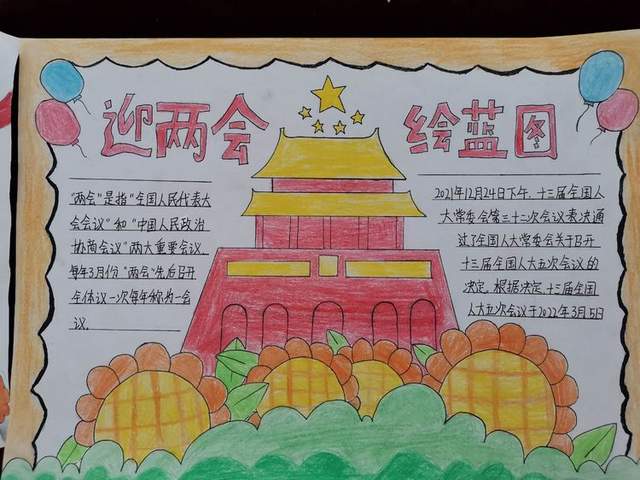 迎两会 绘蓝图
"两会"是指"全国人民代表大
会会议"和"中国人民政治
协商会议"两大重要会议
每年3月份"两会"先后召开
全体议一次每年称为一会
议.
2021年12月24日下午,十三届全国人
大常委会第三十二次会议表决通
过了全国人大常委会关于召开
十三届全国人大五次会议的
决定,根据决定,十三届全国
人大五次会议于2022年3月5日